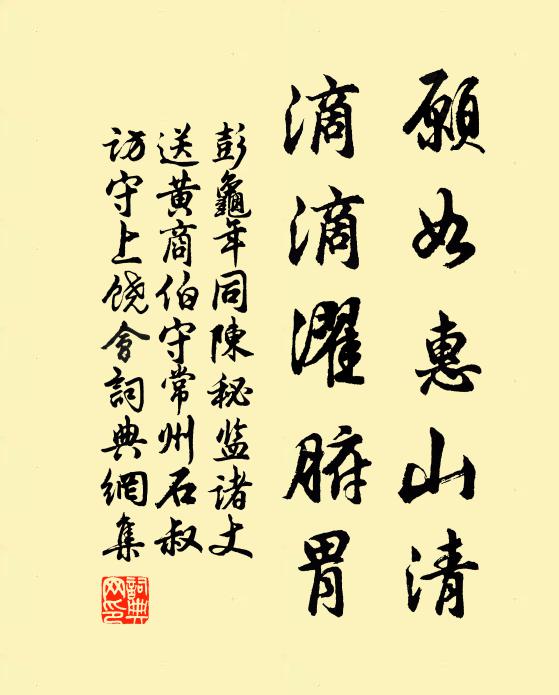 願如惠山清
滴滴濯腑胃
彭龜年同陳秘监諸丈
送黄商伯守常州石叔
访守上饶會詞典網集
詞典